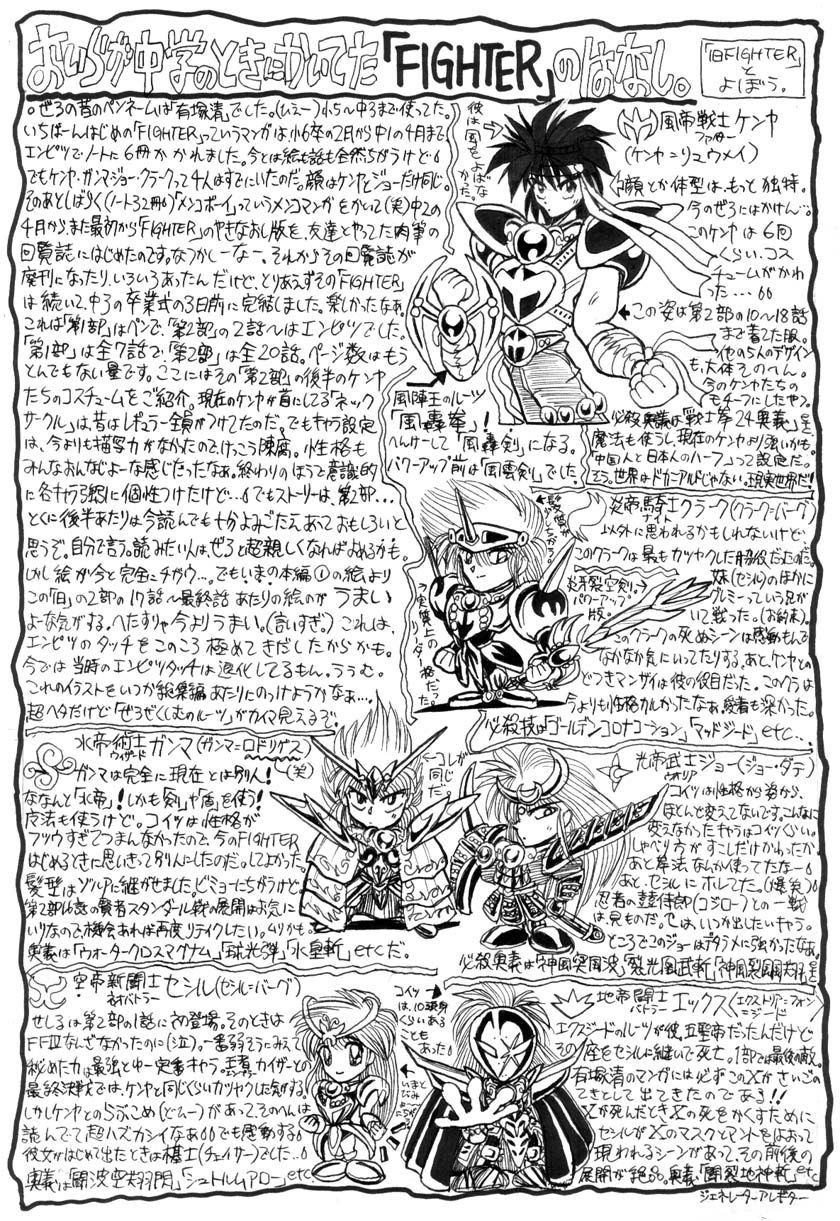 おいらが中学のときにかいてた「FIGHTER」のはなし。
「旧FIGHTER」
と
よぼう。
。ぜろの昔のペンネームは「有塚清」でした。(ひえー)小5〜中3まで使ってた。
いちばーんはじめの「FIGHTER」っていうマンガは小6卒の2月から中1の4月まで
エンピツでノートに6冊かかれました。今とは絵も話も全然ちがうけど
でもケンヤ・ガンマ・ジョー・クラークって4人はすでにいたのだ。顔はケンヤとジョーだけ同じ。
そのあとしばらく(ノート32冊)「メンコボーイ」っていうメンコマンガをかいて(笑)中2の
4月から、また最初から「FIGHTER」のやきなおし版を、友達とやってた肉筆の
回覧誌にはじめたのです。なつかしーなー。それからその回覧誌が
廃刊になったり、いろいろあったんだけど、とりあえずその「FIGHTER」
は続いて、中3の卒業式の3日前に完結しました。楽しかったなあ。
これは「第1部」はペンで、「第2部」の2話〜はエンピツでした。
「第1部」は全7話で、「第2部」は全20話。ページ数はもう
とんでもない量です。ここにはその「第2部」の後半のケンヤ
たちのコスチュームをご紹介。現在のケンヤが首にしてる「ネック
サークル」は、昔はレギュラー全員がつけてたのだ。でもキャラ設定
は、今よりも描写力がなかったので、けっこう陳腐。性格も
みんなおんなじよーな感じだったなあ。終わりのほうで意識的
に各キャラ強烈に個性つけたけど…でもストーリーは、第2部…
とくに後半あたりは今読んでも十分よみごたえあっておもしろいと
思うぞ。自分で言う。読みたい人は、ぜろと超親しくなればよめるかも。
しかし絵が今と完全にチガウ…。でもいまの本編①の絵より
この「旧」の2部の17話〜最終話あたりの絵のが うまい
よーな気がする。へたすりゃ今よりうまい。(言いすぎ)これは、
エンピツのタッチをこのころ極めてきだしたからかも。
今では当時のエンピツタッチは退化してるもん。ううむ。
これのイラストをいつか総集編あたりにのっけようかなぁ…。
超ヘタだけど「ぜろぜくしむのルーツ」がカイマ見えるで。
彼は風をよばなかった。
風帝戦士ケンヤ
ファイター
(ケンヤ=リュウメイ)
顔とか体型は、もっと独特。
今のぜろにはかけん…。
このケンヤは6回
くらい、コス
チュームがかわ
った…
←この姿は第2部の10〜18話
まで着てた服。
他の5人のデザイン
も、大体そのへん。
今のケンヤたちの
モチーフにしたやつ。
風陣王のルーツ
「風轟拳」!
へんけーして「風轟剣」になる。
パワーアップ前は「風雲剣」でした
必殺奥義は「戦士拳24奥義」
魔法も使うし、現在のケンヤより強いかも。
「中国人と日本人のハーフ」って設定だ。
そう。世界はドカーアルドじゃない。現実世界だ!
炎帝騎士クラーク(クラーク=バーグ)
ナイト
以外に思われるかもしれないけど、
このクラークは最もカツヤクした脇役だったのだ。
妹(セシル)のほかに
グルミーっていう兄が
いて戦った。(お約束)。
このクラークの死ぬシーンは感動もんで
なかなか気にいってたりする。あと、ケンヤとの
どつきマンザイは彼の役目だった。このクラは
今よりも性格カルかったなあ。読者も深かった。
必殺技は「ゴールデンコロナコーション」「マッドジード」etc…
炎牙裂空剣。
パワーアップ
版。
実質上のリーダー格だった
氷帝術士ガンマ(ガンマ=ロドリゲス)
ウィザード
ガンマは完全に現在とは別人!(笑)
ななんと「氷帝」!しかも「剣」や「盾」を使う!
魔法も使うけど。コイツは性格が
フツウすぎてつまんなかったので、今のFIGHTER
はじめるときに思いきって別人にしたのだ。してよかった。
髪型はゾルアに継がせました。ビミョーにちがうけど。
第2部16話の賢者スタンダール戦の展開はお気に
いりなので、機会あれば再度リテイクしたい。ムリかも。
奥義は「ウォータークロスマグナム」「球光弾」「氷皇斬」etcだ。
←コレが
同じだ。
光帝武士ジョー(ジョー・ダテ)
ウォリア
コイツは性格から姿から、
ほとんど変えてないです。こんなに
変えなかったキャラはコイツくらい。
しゃべり方がすこしだけかわったか。
あと算法なんか使ってたなー
あと、セシルにホレてた。(爆笑)
忍者の鼓侍郎(コジロー)との一戦
は見ものだ。では、いつか出したいキャラ。
ところでこのジョーはデタラメに強かったなあ。
必殺奥義は「神風突風波」「裂光風武斬」「神風裂闘翔」
空帝新闘士セシル(セシル=バーグ)
ネオバトラー
せしるは第2部の1話に初登場。そのときは
FFⅣなんざなかったのに(ジェ)。一番弱そうにみえて
秘めた力は最強とゆー定番キャラ。真・カイザーとの
最終決戦では、ケンヤと同じくらいカツヤクした気がする。
しかしケンヤとのらぶこめ(どひゅー)があって、そのへんは
読んでて超ハズカシイなあ でも感動する
彼女がはじめ出たときは棋士(チェイサー)でした…
奥義は「闘波空翔羽閃」「シュトルムアロー」etc
コイツ
は、10頭身
くらいある
ことも
あった
地帝闘士エックス(エクストリア=フォン=ジード)
バトラー
エグズジードのルーツが彼。五聖帝だったんだけど
その座をセシルに継いで死亡。1部では最後の敵。
有塚清のマンガには必ずこのXがさいごの
てきとして出てきたのである!!
Xが死んだとき、Xの死をかくすために
セシルがXのマスクとマントをはおって
現われるシーンがあって、その前後の
展開が絶品。奥義「闘裂地神斬」etc
ジェネレーターアレギター